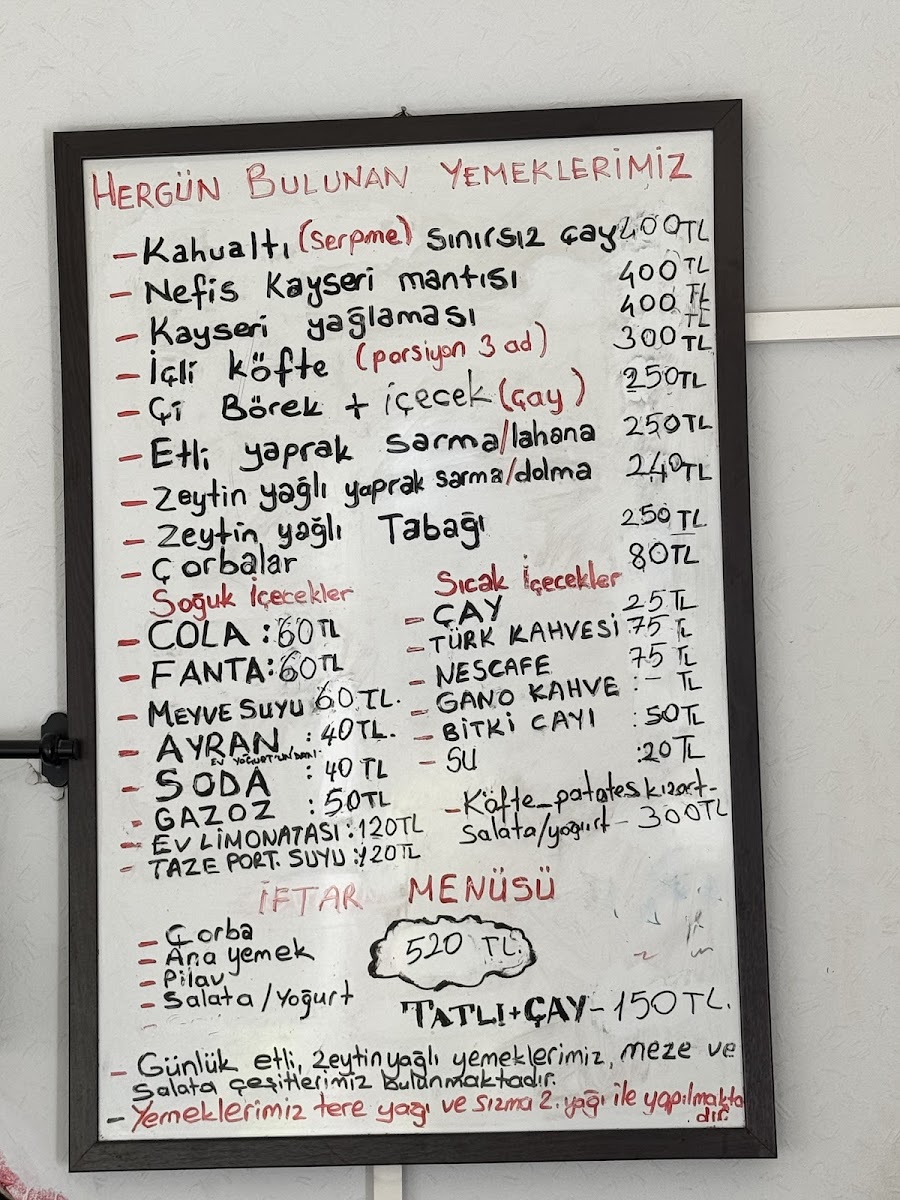 HERGÜN BULUNAN YEMEKLERİMİZ
- Kahvaltı (serpme) sınırsız çay 400TL
- Nefis Kayseri mantısı 400TL
- Kayseri yağlaması 400 TL
- İçli köfte (porsiyon 3 ad) 300TL
- Çi Börek + içecek (çay) 250TL
- Etli yaprak sarma/lahana 250TL
- Zeytin yağlı yaprak sarma/dolma 240TL
- Zeytin yağlı Tabağı 250 TL
- Çorbalar 80TL
Soğuk İçecekler
- COLA : 60TL
- FANTA: 60TL
- MEYVE SUYU 60TL.
- AYRAN : 40TL.
EV YOĞURT'UNDAN
- SODA : 40 TL
- GAZOZ : 50TL
- EV LİMONATASI : 120TL
- TAZE PORT. SUYU : 120TL
Sıcak İçecekler
- ÇAY 25TL
- TÜRK KAHVESİ 75 TL
- NESCAFE 75 TL
- GANO KAHVE : - TL
- BİTKİ ÇAYI : 50TL
- SU : 20TL
- Köfte-patates kızart-
salata/yoğurt - 300TL
İFTAR MENÜSÜ
- Çorba
- Ana yemek
- Pilav
- Salata/Yoğurt
520 TL.
TATLI+ÇAY-150TL.
- Günlük etli, zeytinyağlı yemeklerimiz, meze ve
Salata çeşitlerimiz bulunmaktadır.
- Yemeklerimiz tere yağı ve sızma z. yağı ile yapılmakta
dır.